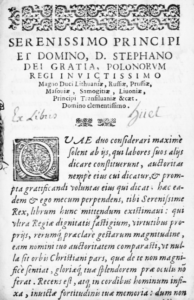 SERENISSIMO PRINCIPI
ET DOMINO, D. STEPHANO
DEI GRATIA, POLONORVM
REGI INVICTISSIMO
Magno Duci Lithuaniæ, Russiæ, Prussiæ,
Masouiæ, Samogitiæ, Liuoniæ,
Principi Transiluaniæ &cæt.
Domino clementissimo.
Ex Libris
QVAE dno considerari maximè
solent ab ijs, qui labores suos alijs
dicare constituerunt, auctoritas
nempe eius cui dicatur, &
prompta gratificandi voluntas eius qui dicat: hac
eadem & ego mecum perpendens, tibi Serenissime
Rex, librum hunc mittendum existimaui: qui
vltra Regiæ dignitatis fastigium, virtutibus
rerumque præclarè gestarum magnitudine,
eam nomini tuo auctoritatem comparasti, vt nulla
sit orbis Christiani pars, quæ de te non
sentiat, gloriæque tuæ splendorem præ oculis nō
ferat. Recens est, atque in cordibus hominum infixa,
inuictæ fortitudinis tuæ memoria: dum